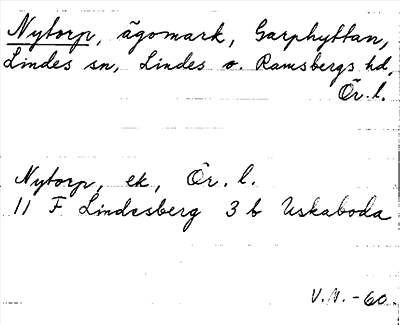 Nytorp, ägomark, Garphyttan,
Lindes sn, Lindes o. Ramsbergs hd,
Ör. l.
Nytorp, ek, Ör. l.
11 F Lindesberg 3 b Uskaboda
V.N. -60.